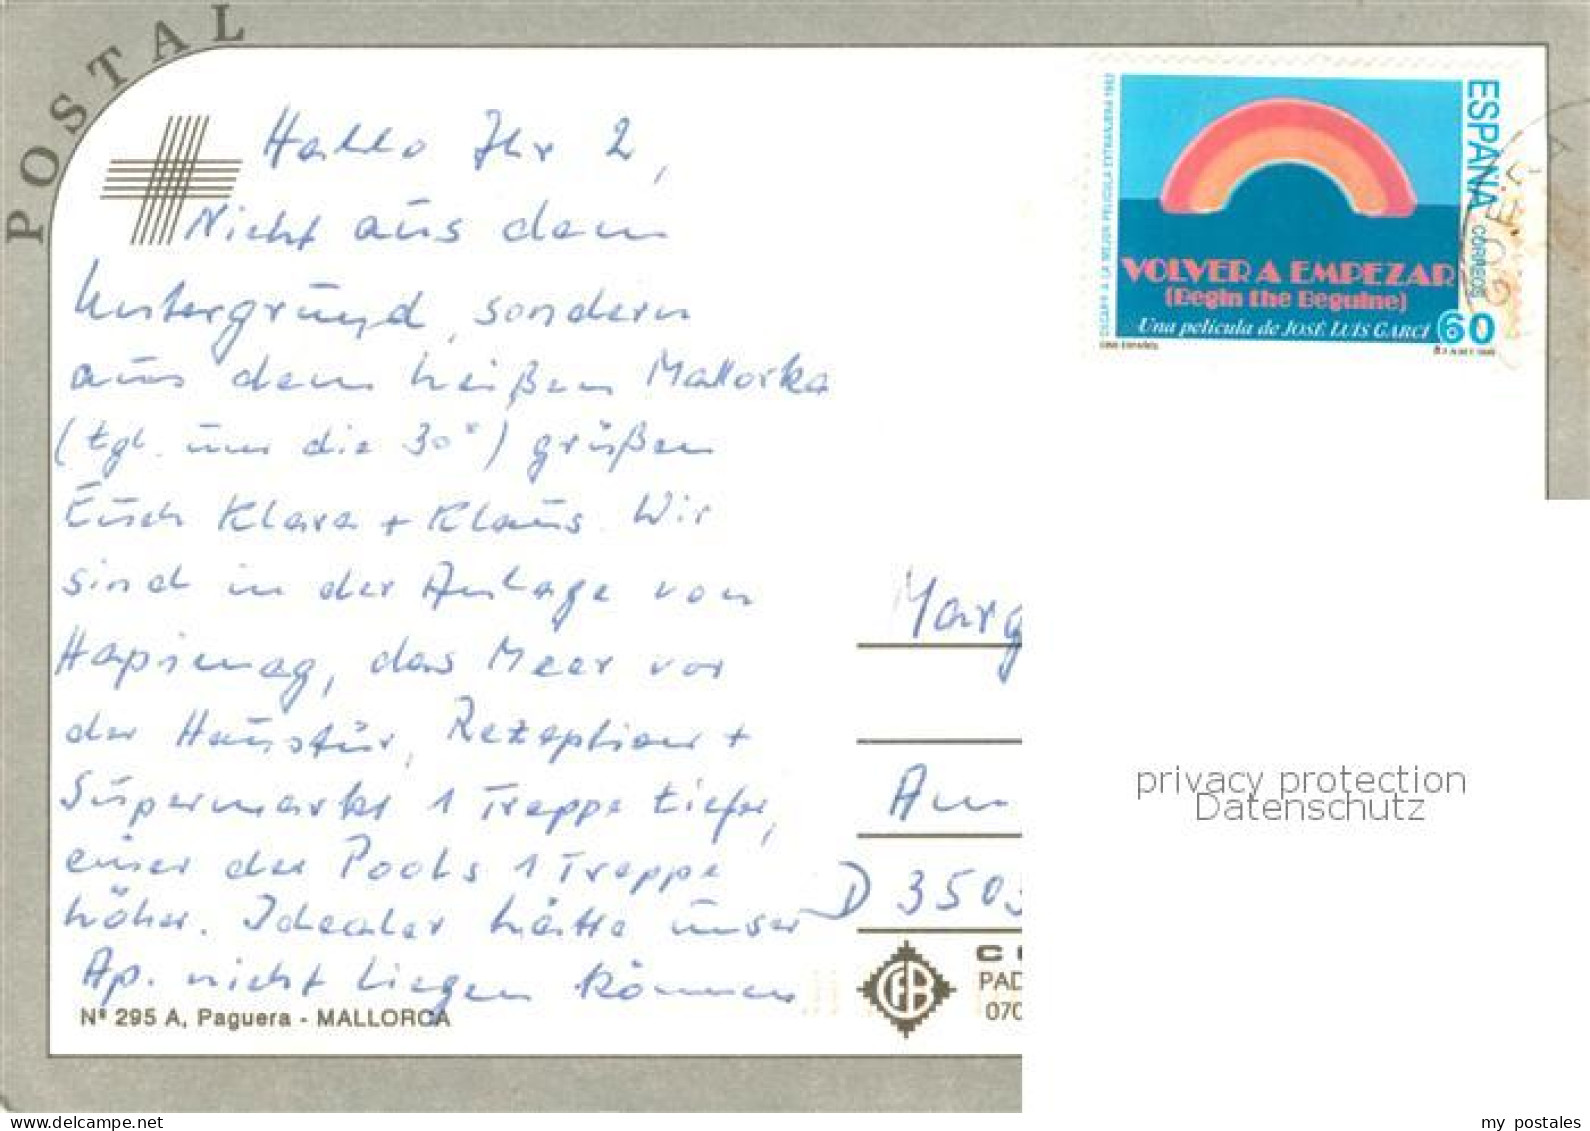 POSTAL
Hallo Ihr 2,
Nicht aus dem
Untergrund, sondern
aus dem heißen Mallorka
(tgl. um die 30°) grüßen
Euch Klara + Klaus. Wir
sind in der Anlage von
Hapimag, das Meer vor
der Haustür, Rezeption +
Supermarkt 1 Treppe tiefer,
einer der Pools 1 Treppe
höher. Idealer hätte unser
Ap. nicht liegen können
Nº 295 A, Paguera - MALLORCA
OSCAR A LA MEJOR PELICULA EXTRANJERA 1982
ESPAÑA CORREOS
VOLVER A EMPEZAR
(Begin the Beguine)
Una película de JOSÉ LUIS GARCI
60
CINE ESPAÑOL
Marg
Am
D 3503
CFB
PAD
070
privacy protection
Datenschutz
my postales